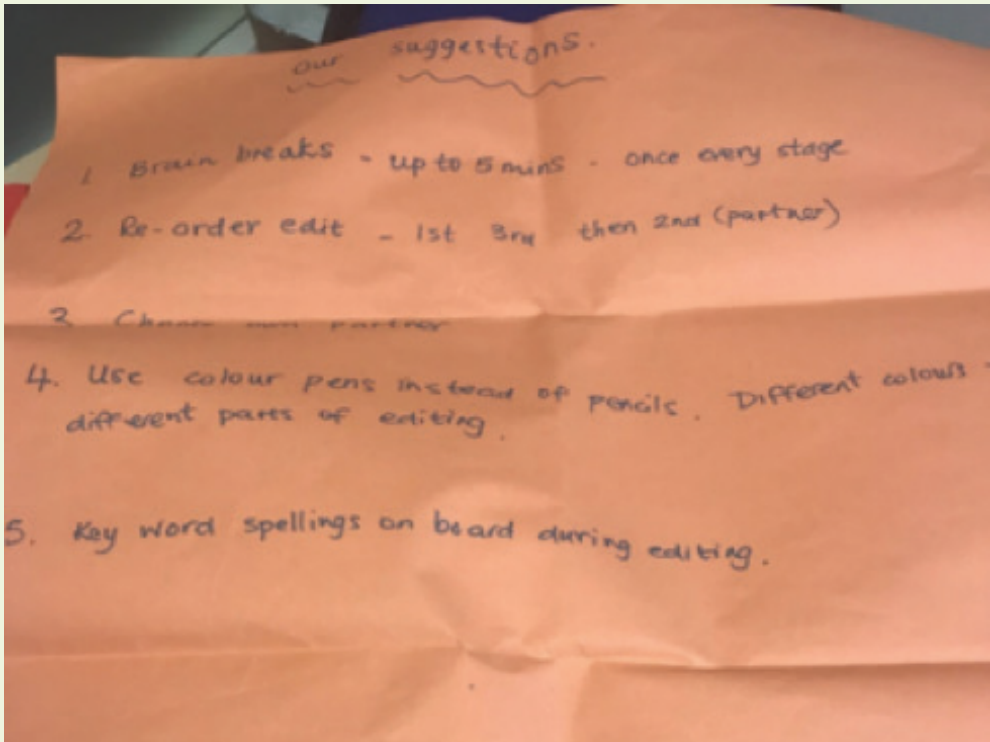 our suggestions.
1 Brain breaks - up to 5 mins - once every stage
2. Re-order edit - 1st 3rd then 2nd (partner)
3 partner
4. Use colour pens instead of pencils. Different colours -
different parts of editing.
5. Key word spellings on board during editing.